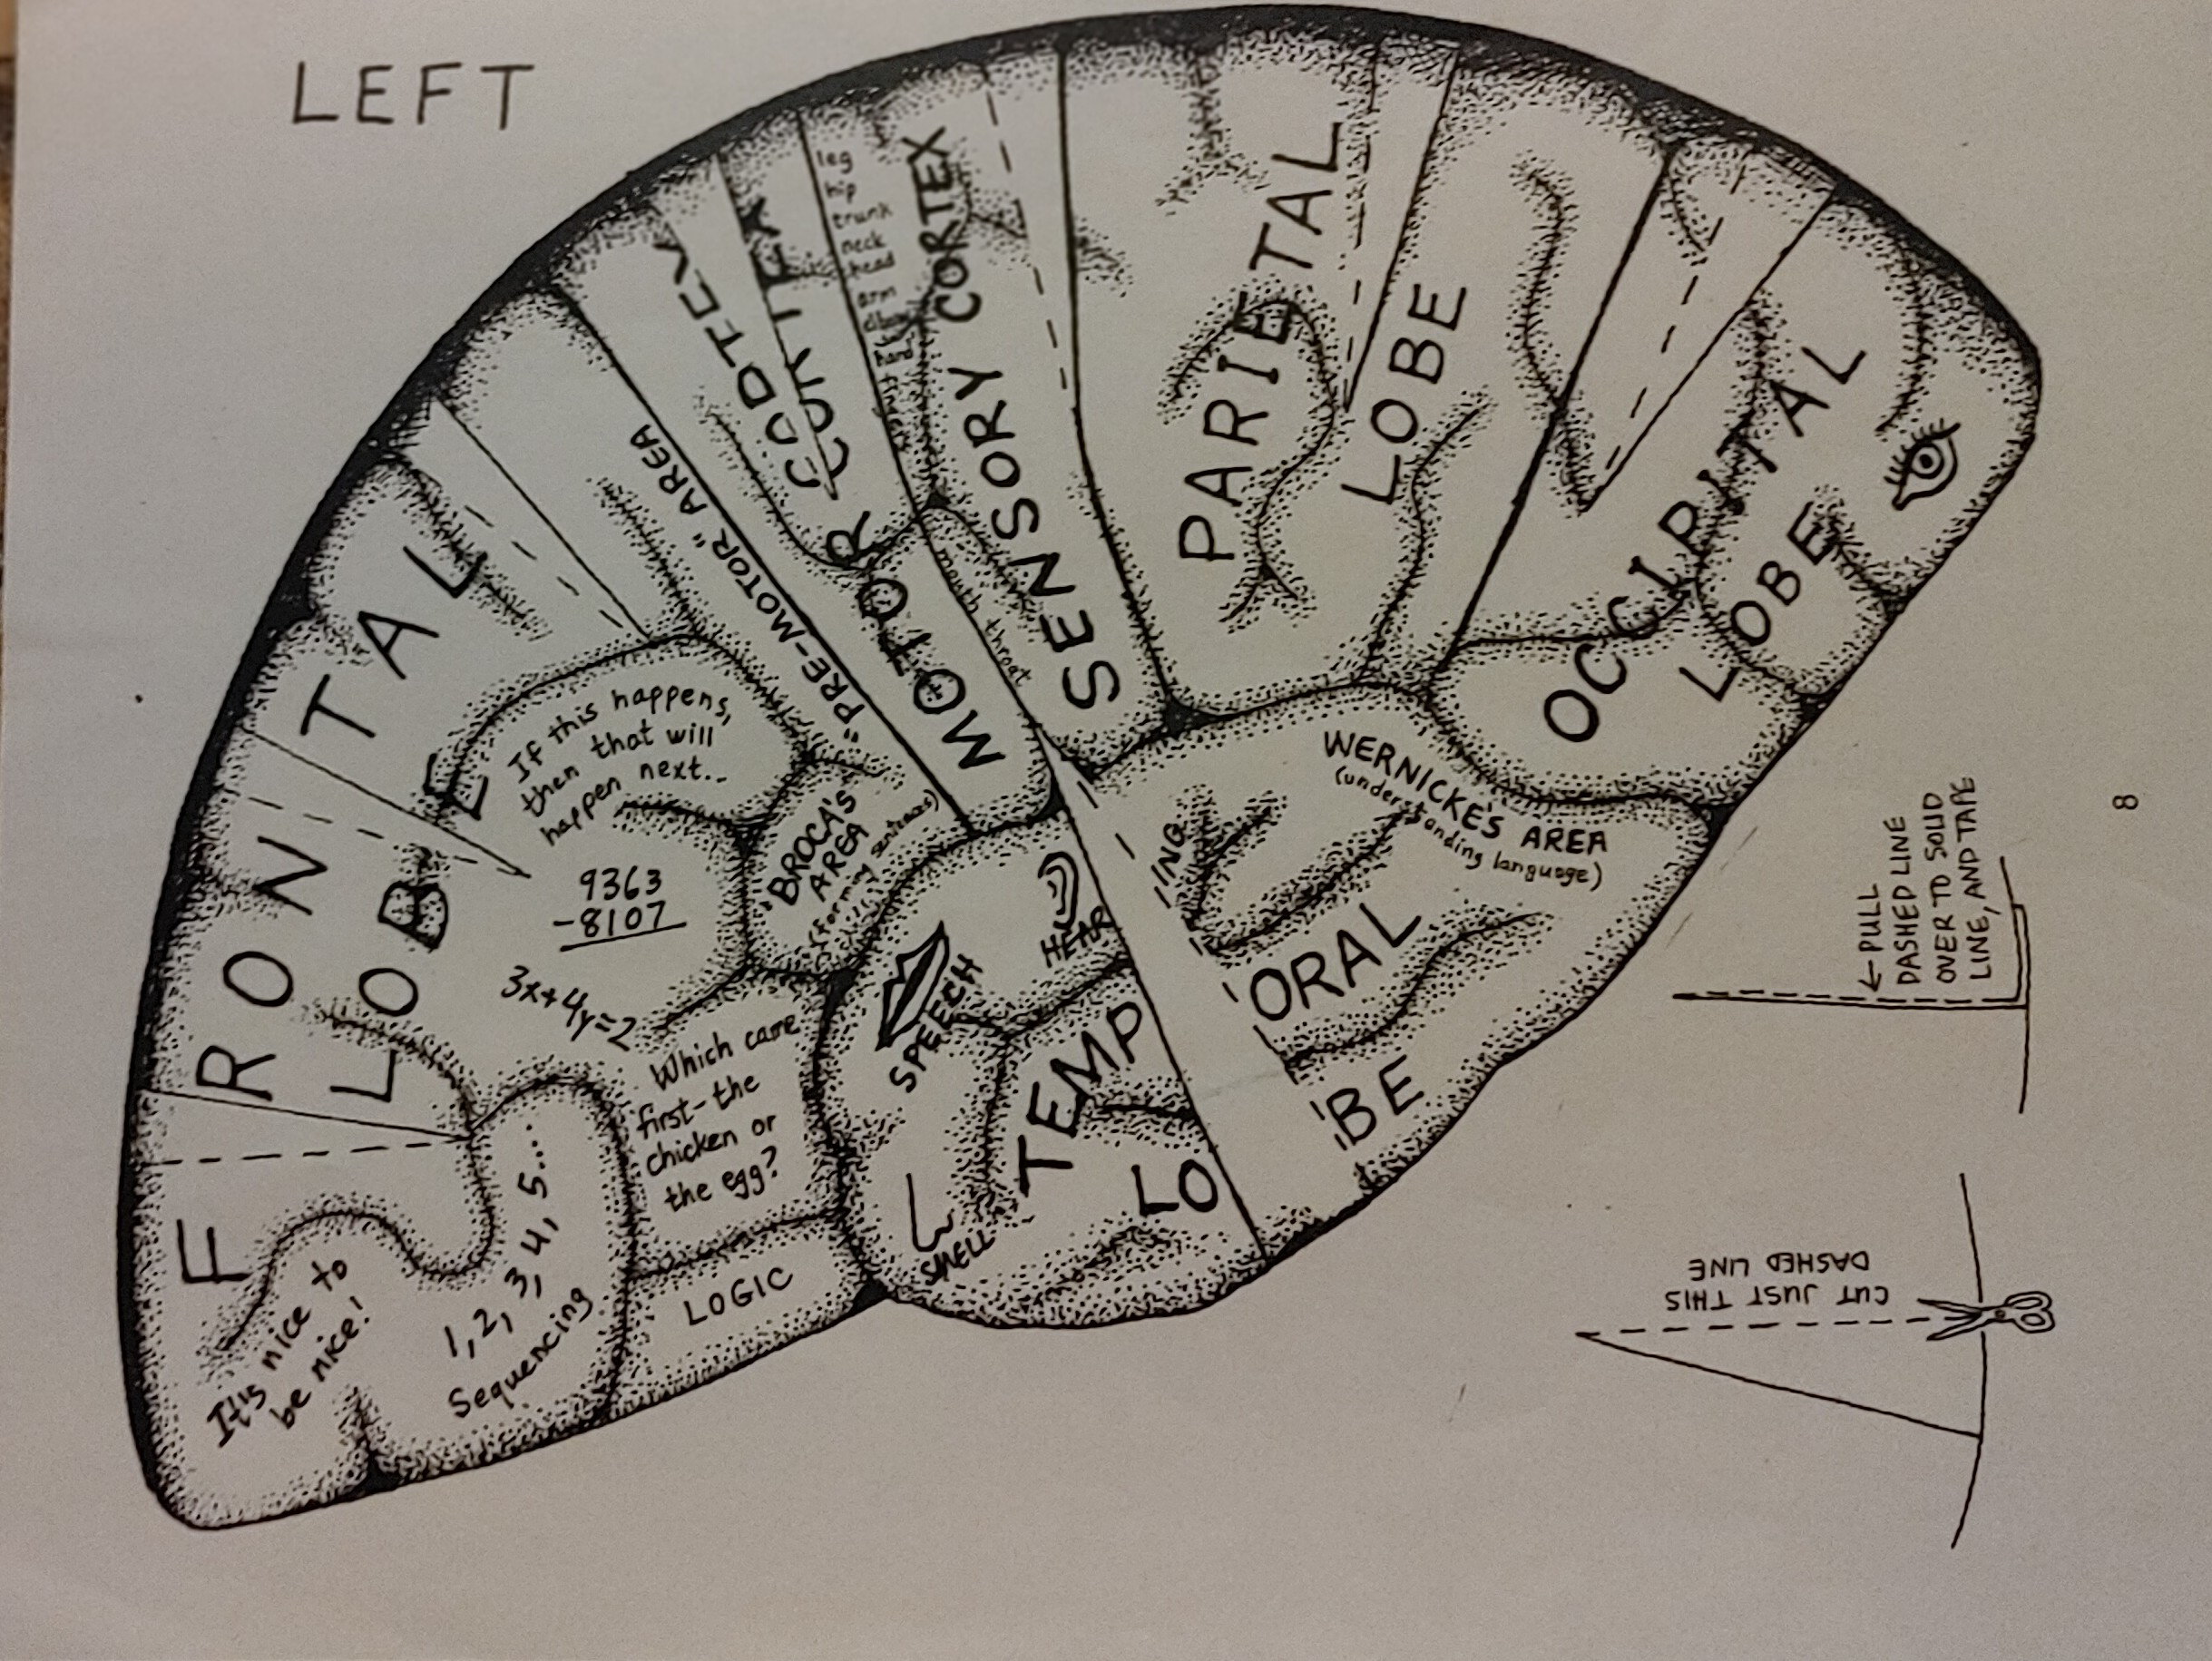 LEFT
FRONTAL
LOBE
It's nice to
be nice!
1, 2, 3, 4, 5....
Sequencing
If this happens,
then that will
happen next...
9363
-8107
3x+4y=2
Which came
first-the
chicken or
the egg?
LOGIC
"BROCA'S
AREA"
(forming sentences)
"PRE-MOTOR" AREA
MOTOR CORTEX
CORTEX
leg
hip
trunk
neck
head
arm
elbow
hand
fingers
mouth throat
SENSORY CORTEX
PARIETAL
LOBE
OCCIPITAL
LOBE
WERNICKE'S AREA
(understanding language)
SPEECH
HEAR
ING
SMELL
TEMP
LO
ORAL
BE
←PULL
DASHED LINE
OVER TO SOLID
LINE, AND TAPE
CUT JUST THIS
DASHED LINE
8